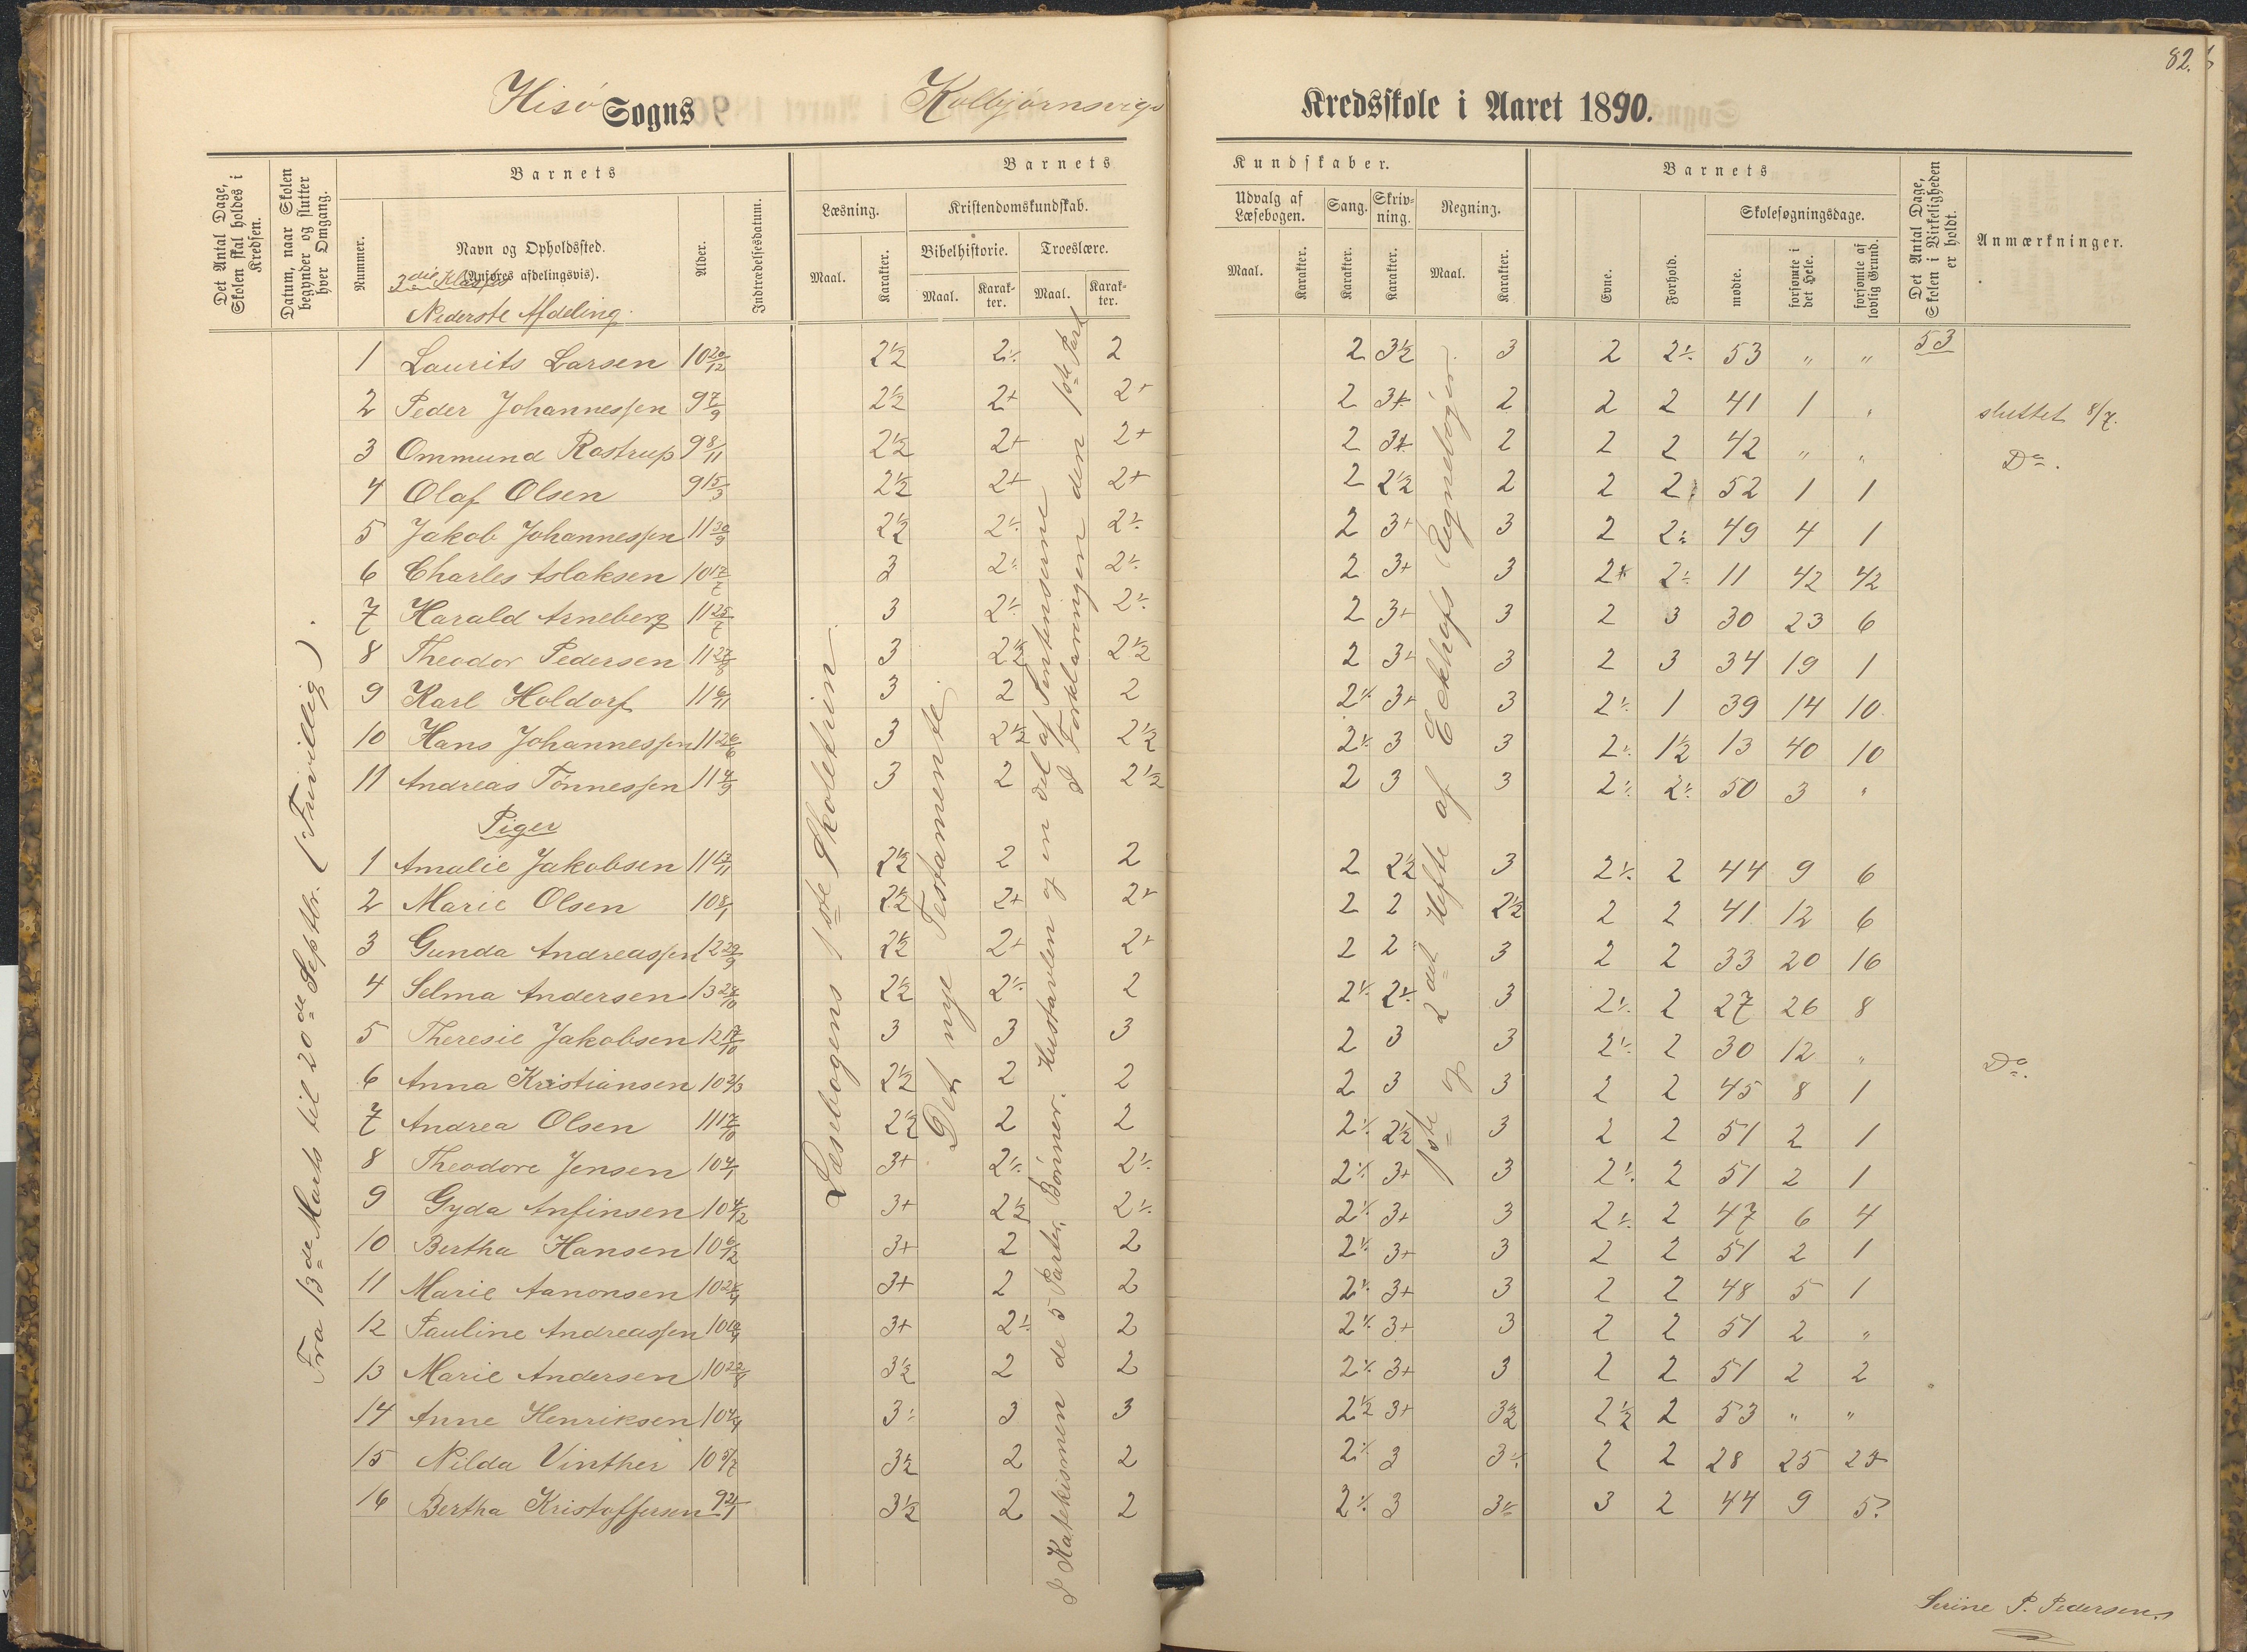 82.
Hisø Sogns Kolbjørnsvigs Kredsskole i Aaret 1890.
Det Antal Dage, Skolen skal holdes i Kredsen.
Datum, naar Skolen begynder og slutter hver Omgang.
Barnets
Nummer.
Navn og Opholdssted.
(Anføres afdelingsvis).
3die Klasses
Nederste Afdeling.
Alder.
Indtrædelsesdatum.
Barnets Kundskaber.
Læsning.
Maal.
Karakter.
Kristendomskundskab.
Bibelhistorie.
Maal.
Karakter.
Troeslære.
Maal.
Karakter.
Udvalg af Læsebogen.
Maal.
Karakter.
Sang.
Karakter.
Skrivning.
Karakter.
Regning.
Maal.
Karakter.
Barnets
Evne.
Forhold.
Skolesøgningsdage.
mødte.
forsømte i det Hele.
forsømte af lovlig Grund.
Det Antal Dage, Skolen i Virkeligheden er holdt.
Anmærkninger.
Fra 13de Marts til 20de Septbr. (Frivillig).
Læsebogens 1ste Skoletrin
Det nye Testamente.
I Katekismen de 5 Parter, Bønner. Hustavlen og en Del af Sentenserne
I Forklaringen den 1ste Part
1ste og 2det Hefte af Eckhofs Regnebøger.
1 Laurits Larsen 10 20/12 2½ 2÷ 2 2 3½ 3 2 2÷ 53 " " 53
2 Peder Johannessen 9 7/9 2½ 2+ 2+ 2 3+ 2 2 2 41 1 " sluttet 8/7.
3 Ommund Rostrup 9 8/11 2½ 2+ 2+ 2 3+ 2 2 2 42 " " Do.
4 Olaf Olsen 9 15/3 2½ 2+ 2+ 2 2½ 2 2 2 52 1 1
5 Jakob Johannessen 11 30/9 2½ 2÷ 2÷ 2 3+ 3 2 2÷ 49 4 1
6 Charles Aslaksen 10 17/7 3 2÷ 2÷ 2 3+ 3 2+ 2÷ 11 42 42
7 Harald Arneberg 11 25/7 3 2÷ 2÷ 2 3+ 3 2 3 30 23 6
8 Theodor Pedersen 11 27/8 3 2½ 2½ 2 3+ 3 2 3 34 19 1
9 Karl Holdorf 11 6/11 3 2 2 2÷ 3+ 3 2÷ 1 39 14 10
10 Hans Johannessen 11 26/6 3 2½ 2½ 2÷ 3 3 2÷ 1½ 13 40 10
11 Andreas Tønnessen 11 4/9 3 2 2½ 2 3 3 2÷ 2÷ 50 3 "
Piger
1 Amalie Jakobsen 11 13/11 2½ 2 2 2 2½ 3 2÷ 2 44 9 6
2 Marie Olsen 10 8/1 2½ 2+ 2+ 2 2 2½ 2 2 41 12 6
3 Gunda Andreassen 12 29/9 2½ 2+ 2+ 2 2 3 2 2 33 20 16
4 Selma Andersen 13 27/10 2½ 2÷ 2 2÷ 2÷ 3 2÷ 2 27 26 8
5 Theresie Jakobsen 12 17/10 3 3 3 2 3 3 2÷ 2 30 12 " Do.
6 Anna Kristiansen 10 3/3 2½ 2 2 2 3 3 2 2 45 8 1
7 Andrea Olsen 11 17/10 2½ 2 2 2÷ 2½ 3 2 2 51 2 1
8 Theodore Jensen 10 4/1 3+ 2÷ 2÷ 2÷ 3+ 3 2÷ 2 51 2 1
9 Gyda Anfinsen 10 4/12 3+ 2½ 2÷ 2÷ 3+ 3 2÷ 2 47 6 4
10 Bertha Hansen 10 6/12 3+ 2 2 2÷ 3+ 3 2 2 51 2 1
11 Marie Aanonsen 10 28/4 3+ 2 2 2÷ 3+ 3 2 2 48 5 1
12 Pauline Andreassen 10 19/4 3+ 2÷ 2 2÷ 3+ 3 2 2 51 2 "
13 Marie Andersen 10 22/8 3½ 2 2 2÷ 3+ 3 2 2 51 2 2
14 Anne Henriksen 10 4/4 3÷ 3 3 2½ 3+ 3½ 2½ 2 53 " "
15 Nilda Vinther 10 5/7 3½ 2 2 2÷ 3 3÷ 2 2 28 25 25
16 Bertha Kristoffersen 9 21/1 3½ 2 2 2÷ 3 3÷ 3 2 44 9 5?
Serine P. Pedersen.